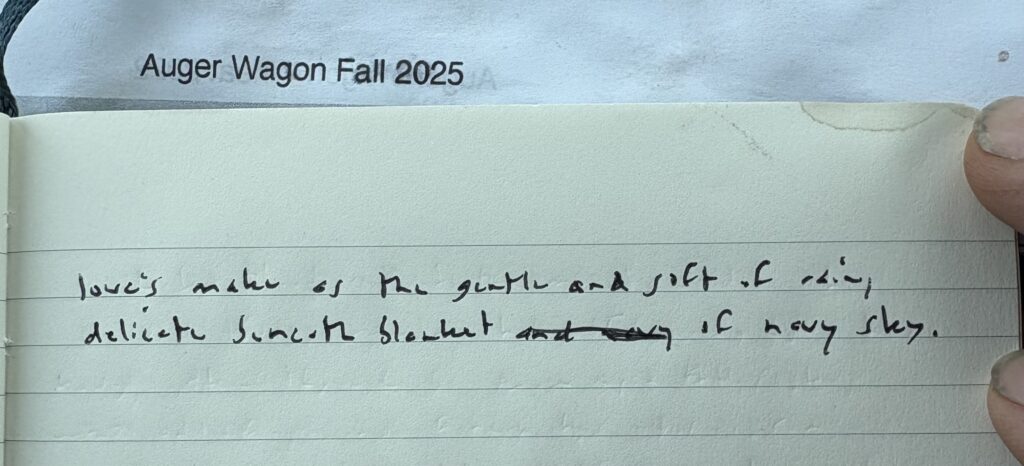 Auger Wagon Fall 2025
love's make as the gentle and soft of rain,
delicate beneath blanket of navy sky.